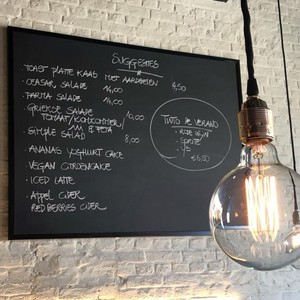 SUGGESTIES
TOAST PLATTE KAAS MET AARDBEIEN
9,50
· CEASAR SALADE 14,00
PARMA SALADE 14,00
· GRIEKSE SALADE 10,00
TOMAAT/KOMKOMMER/
& FETA
· SIMPLE SALAD 8,00
· ANANAS YOGHURT CAKE
· VEGAN CITROENCAKE
· ICED LATTE
· APPEL CIDER
RED BERRIES CIDER
TINTO DE VERANO
- RODE WIJN
- SPRITE
- IJS
€6,50